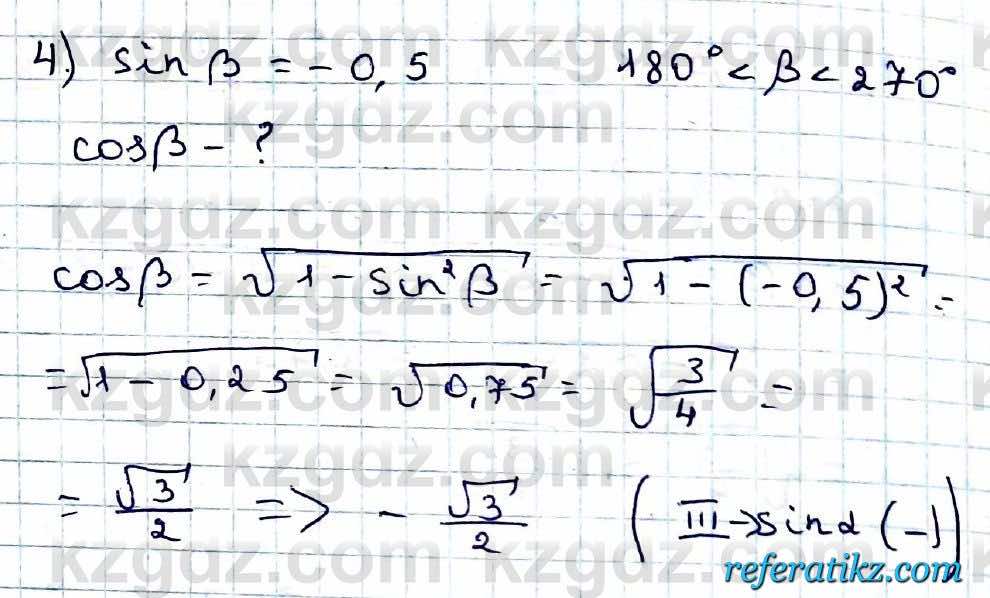 4) sin β = - 0,5   180° < β < 270°
cos β - ?
cos β = √(1 - sin² β) = √(1 - (-0,5)²) =
= √(1 - 0,25) = √(0,75) = √(3/4) =
= √3/2 => - √3/2 ( III → sin α (-) )
kzgdz.com
referatikz.com